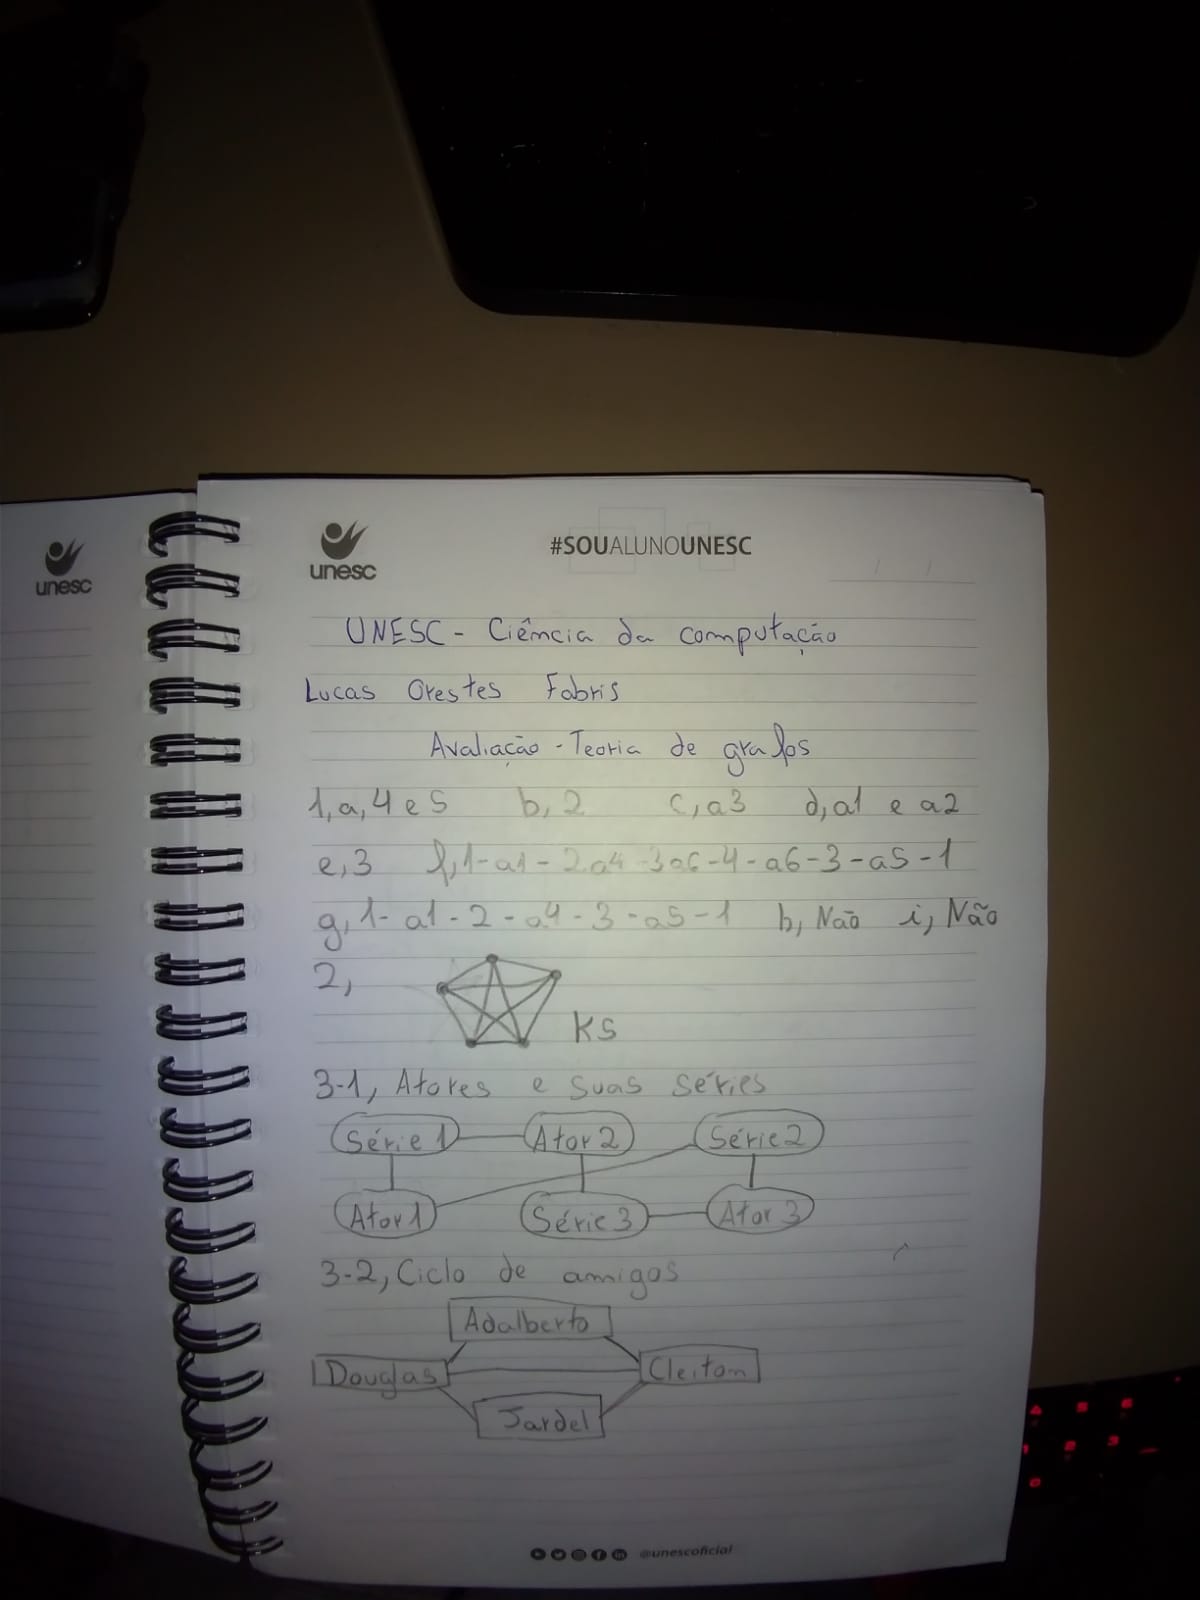 unesc
unesc
#SOUALUNOUNESC
UNESC - Ciência da computação
Lucas Orestes Fabris
Avaliação - Teoria de grafos
1, a, 4 e 5 b, 2 c, a3 d, a1 e a2
e, 3 f, 1-a1-2a4-3a6-4-a6-3-a5-1
g, 1-a1-2-a4-3-a5-1 h, Não i, Não
2,
K5
3-1, Atores e suas séries
Série 1 Ator 2 Série 2
Ator 1 Série 3 Ator 3
3-2, Ciclo de amigos
Adalberto
Douglas Cleitom
Jardel
@unescoficial